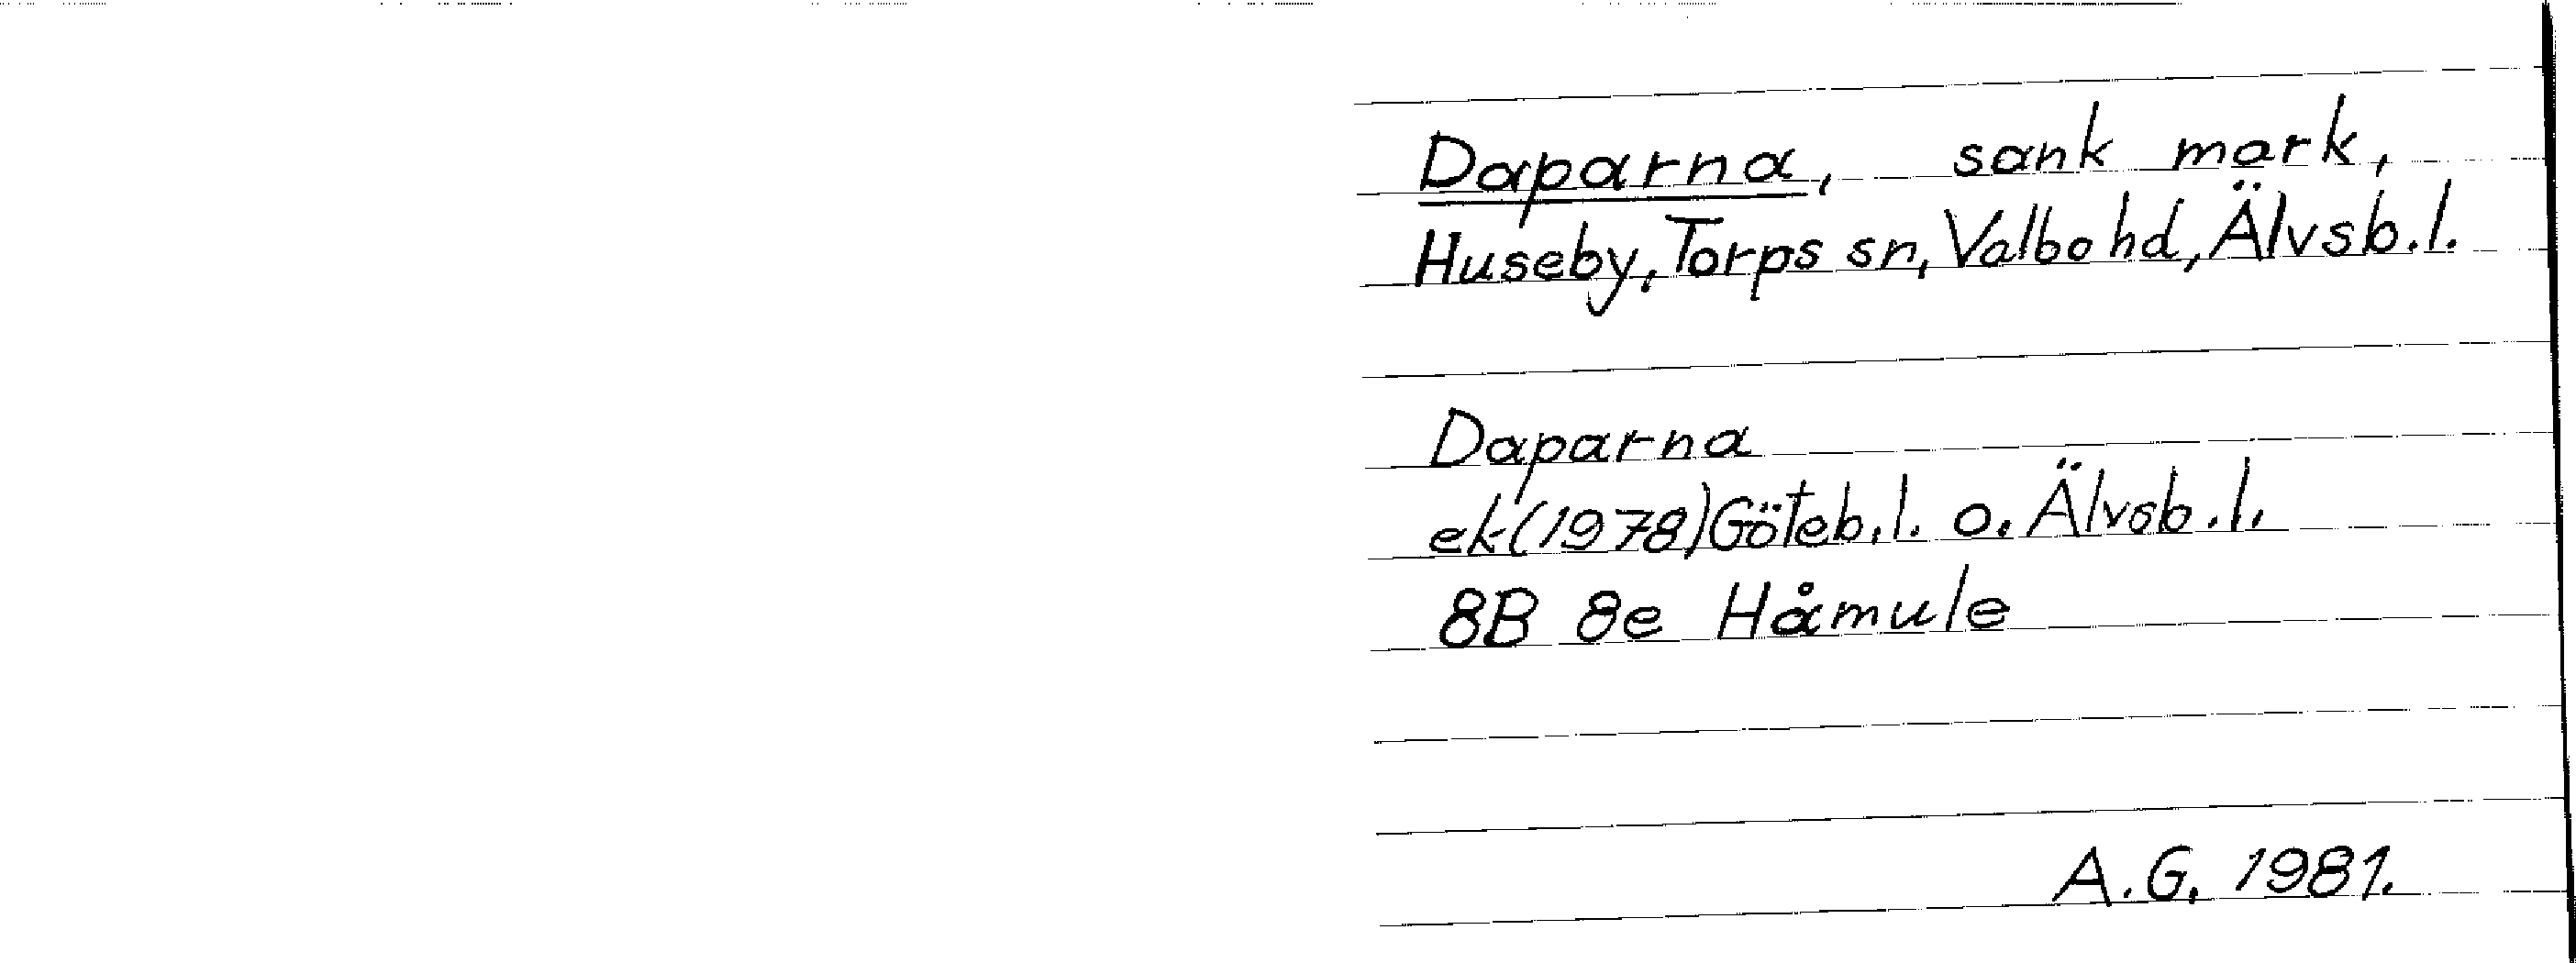 Daparna, sank mark,
Huseby, Torps sn, Valbo hd, Älvsb.l.
Daparna
ek (1978) Göteb.l. o. Älvsb.l.
8B 8e Håmule
A.G. 1981.